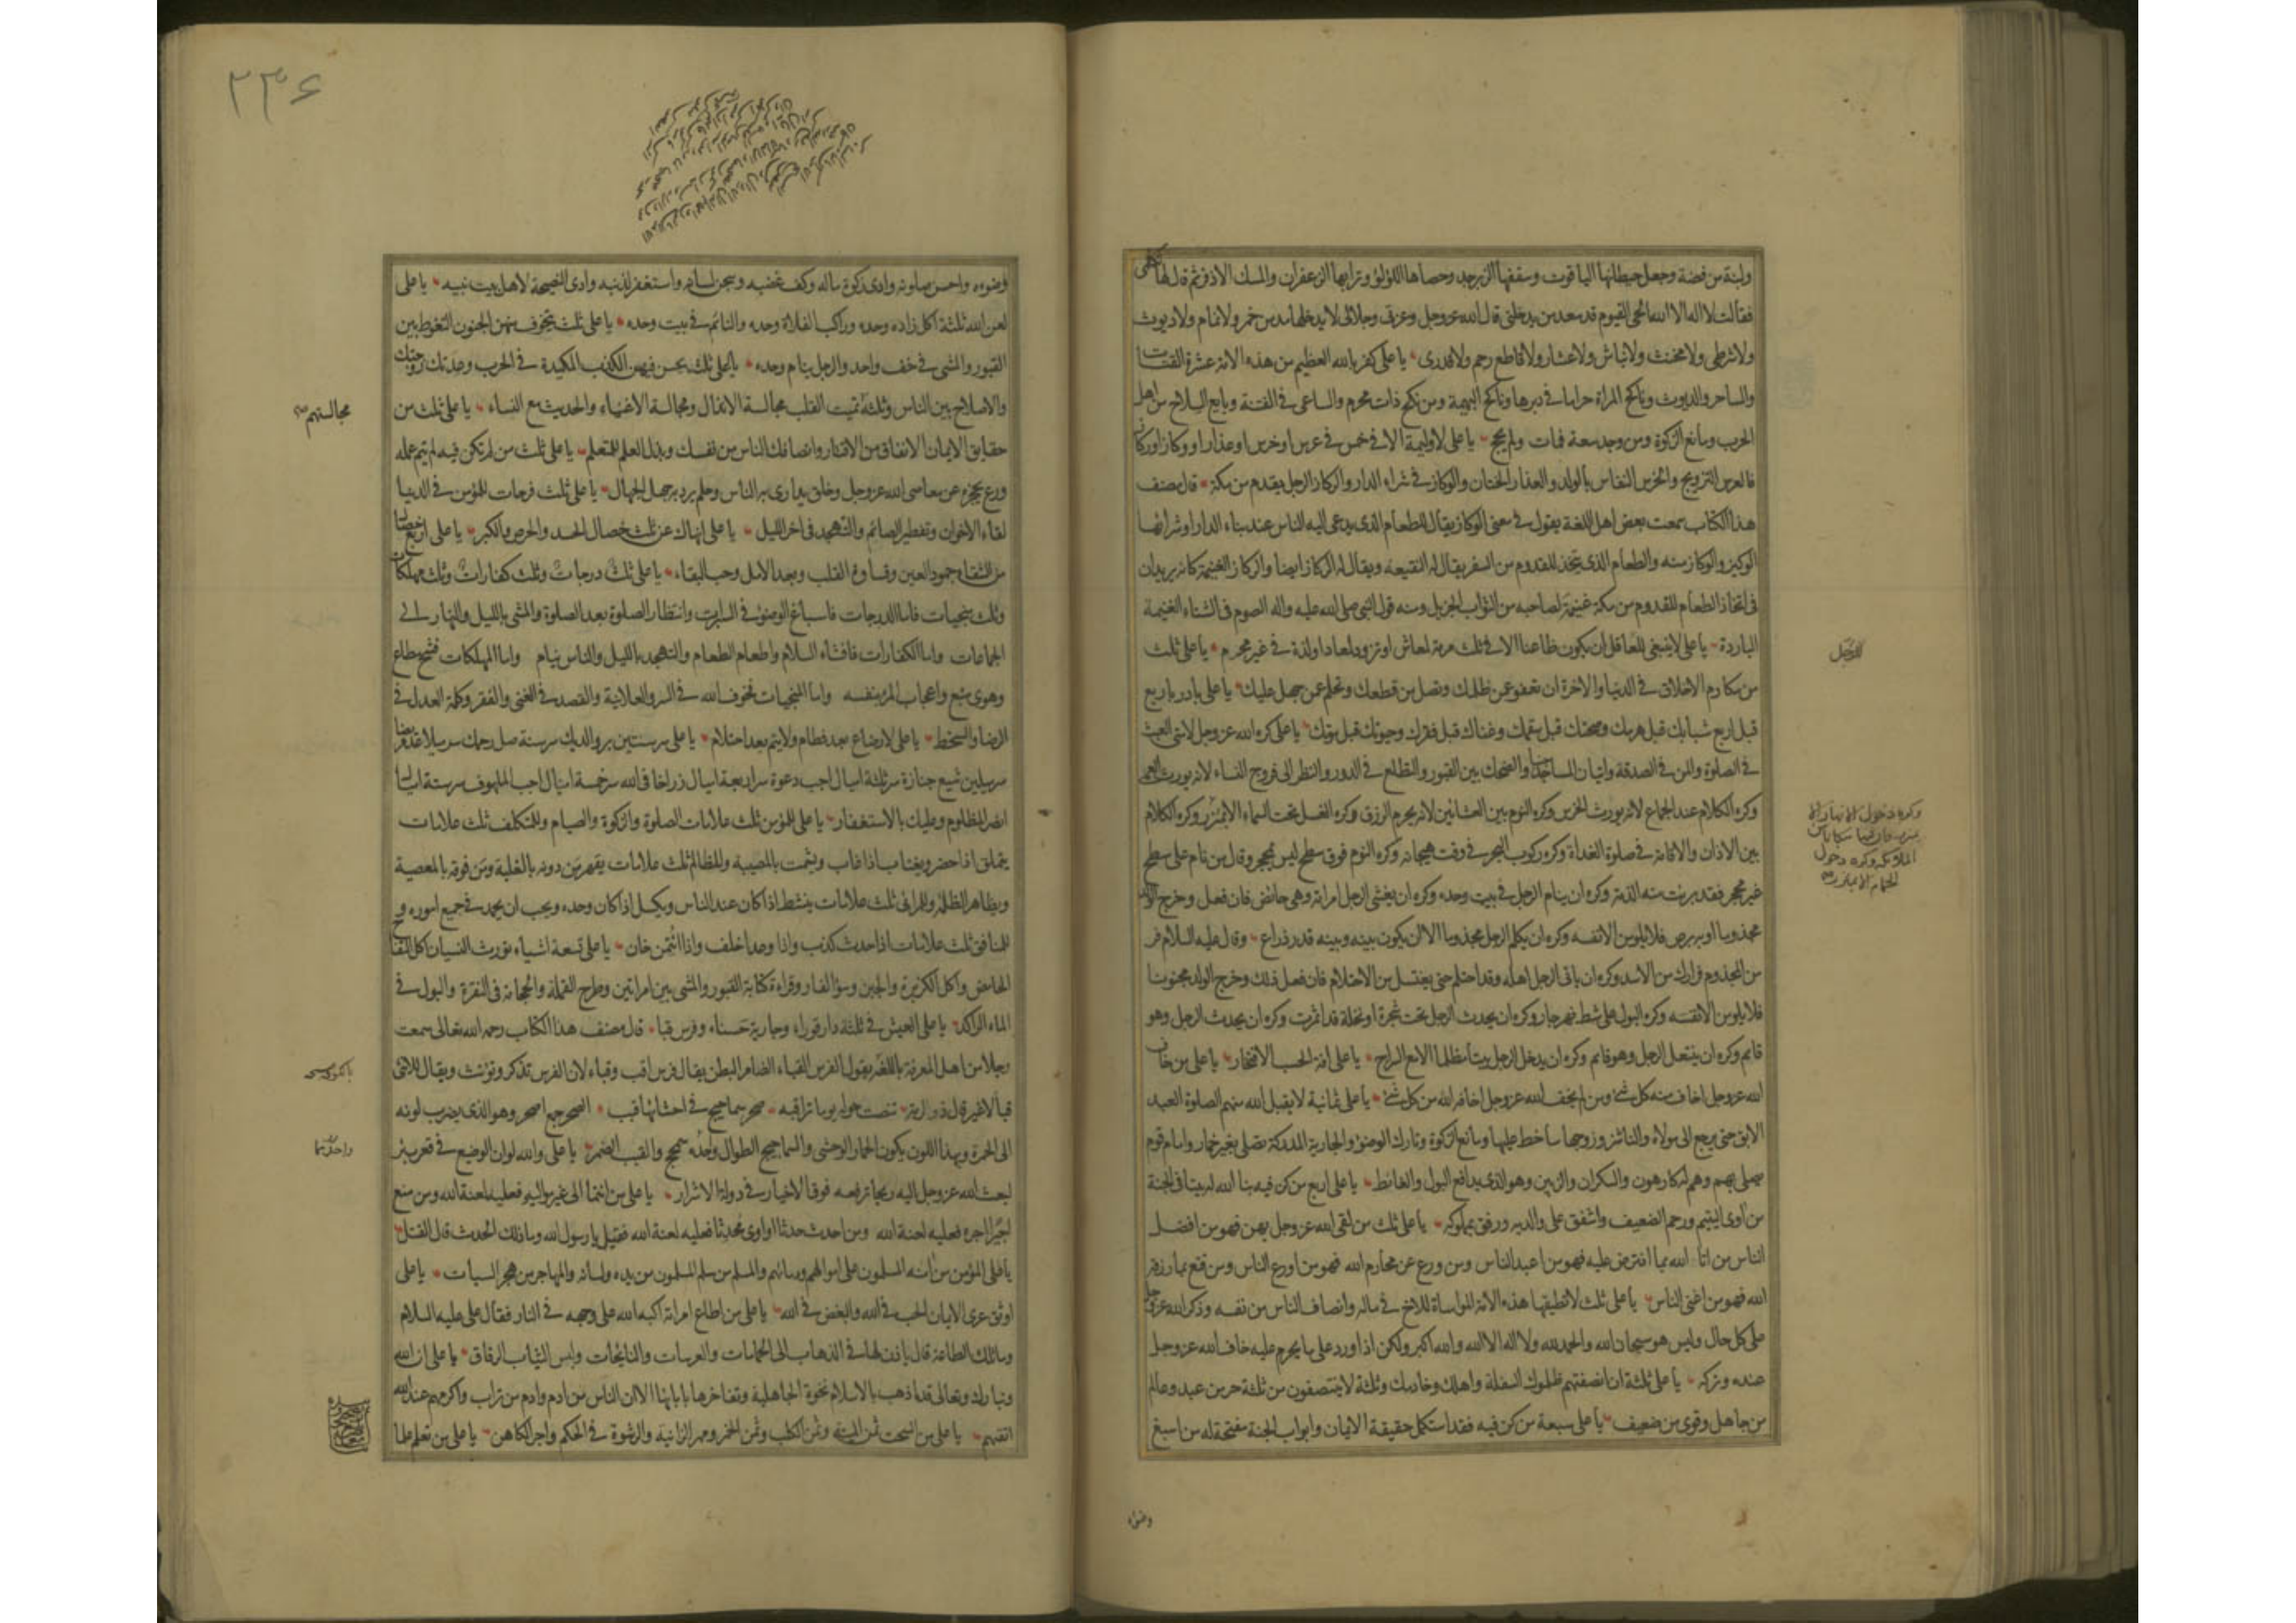 ولبنة من فضة وجعل حيطانها الياقوت وسقفها الزبرجد وحصاها اللؤلؤ وترابها الزعفران والمسك الاذفر ثم قال لها تكلمى
فقالت لا اله الا الله الحى القيوم قد سعد من يدخلنى قال الله عز وجل وعزتى وجلالى لا يدخلها مدمن خمر ولا نمام ولا ديوث
ولا شرطى ولا مخنث ولا نباش ولا عشار ولا قاطع رحم ولا قدرى يا على كفر بالله العظيم من هذه الامة عشرة القتات
والساحر والديوث وناكح المراة حراما فى دبرها وناكح البهيمة ومن نكح ذات محرم والساعى فى الفتنة وبايع السلاح من اهل
الحرب ومانع الزكوة ومن وجد سعة فمات ولم يحج يا على لا وليمة الا فى خمس فى عرس او خرس او عذار او وكاز او ركاز
فالعرس التزويج والخرس النفاس بالولد والعذار الختان والوكاز فى شراء الدار والركاز الرجل يقدم من مكة قال مصنف
هذا الكتاب سمعت بعض اهل اللغة يقول فى معنى الوكاز يقال للطعام الذى يدعى اليه الناس عند بناء الدار او شرائها
الوكيز والوكاز منه والطعام الذى يتخذ للقدوم من السفر يقال له النقيعة ويقال له الركاز ايضا والركاز الغنيمة كانه يريد ان
فى اتخاذ الطعام للقدوم من مكة غنيمة لصاحبه من الثواب الجزيل ومنه قول النبى صلى الله عليه واله الصوم فى الشتاء الغنيمة
الباردة يا على لا ينبغى للعاقل ان يكون ظاعنا الا فى ثلث مرمة لمعاش او تزود لمعاد او لذة فى غير محرم يا على ثلث
من مكارم الاخلاق فى الدنيا والاخرة ان تعفو عمن ظلمك وتصل من قطعك وتحلم عمن جهل عليك يا على بادر باربع
قبل اربع شبابك قبل هرمك وصحتك قبل سقمك وغناك قبل فقرك وحيوتك قبل موتك يا على كره الله عز وجل لامتى العبث
فى الصلوة والمن فى الصدقة واتيان المساجد جنبا والضحك بين القبور والتطلع فى الدور والنظر الى فروج النساء لانه يورث العمى
وكره الكلام عند الجماع لانه يورث الخرس وكره النوم بين العشائين لانه يحرم الرزق وكره الغسل تحت السماء الا بمئزر وكره الكلام
بين الاذان والاقامة فى صلوة الغداة وكره ركوب البحر فى وقت هيجانه وكره النوم فوق سطح ليس بمحجر وقال من نام على سطح
غير محجر فقد برئت منه الذمة وكره ان ينام الرجل فى بيت وحده وكره ان يغشى الرجل امراته وهى حائض فان فعل وخرج الولد
مجذوما او به برص فلا يلومن الا نفسه وكره ان يكلم الرجل مجذوما الا ان يكون بينه وبينه قدر ذراع وقال عليه السلام فر
من المجذوم فرارك من الاسد وكره ان ياتى الرجل اهله وقد احتلم حتى يغتسل من الاحتلام فان فعل ذلك وخرج الولد مجنونا
فلا يلومن الا نفسه وكره البول على شط نهر جار وكره ان يحدث الرجل تحت شجرة او نخلة قد اثمرت وكره ان يحدث الرجل وهو
قائم وكره ان ينتعل الرجل وهو قائم وكره ان يدخل الرجل بيتا مظلما الا مع السراج يا على افة الحسب الافتخار يا على من خاف
الله عز وجل اخاف منه كل شئ ومن لم يخف الله عز وجل اخافه الله من كل شئ يا على ثمانية لا يقبل الله منهم الصلوة العبد
الابق حتى يرجع الى مولاه والناشز وزوجها ساخط عليها ومانع الزكوة وتارك الوضوء والجارية المدركة تصلى بغير خمار وامام قوم
يصلى بهم وهم له كارهون والسكران والزبين وهو الذى يدافع البول والغائط يا على اربع من كن فيه بنا الله له بيتا فى الجنة
من اوى اليتيم ورحم الضعيف واشفق على والديه ورفق بمملوكه يا على ثلث من لقى الله عز وجل بهن فهو من افضل
الناس من اتا الله بما افترض عليه فهو من اعبد الناس ومن ورع عن محارم الله فهو من اورع الناس ومن قنع بما رزقه
الله فهو من اغنى الناس يا على ثلث لا تطيقها هذه الامة المواساة للاخ فى ماله وانصاف الناس من نفسه وذكر الله عز وجل
على كل حال وليس هو سبحان الله والحمد لله ولا اله الا الله والله اكبر ولكن اذا ورد على ما يحرم عليه خاف الله عز وجل
عنده وتركه يا على ثلثة ان انصفتهم ظلموك السفلة واهلك وخادمك وثلثة لا ينتصفون من ثلثة حر من عبد وعالم
من جاهل وقوى من ضعيف يا على سبعة من كن فيه فقد استكمل حقيقة الايمان وابواب الجنة مفتحة له من اسبغ
وضوءه
للرجل
وكره دخول الانهار الا
بمئزر فان فيها سكانا من
الملائكة وكره دخول
الحمام الا بمئزر
٢٣٦
وضوءه واحسن صلوته وادى زكوة ماله وكف غضبه وسجن لسانه واستغفر لذنبه وادى النصيحة لاهل بيت نبيه يا على
لعن الله ثلثة اكل زاده وحده وراكب الفلاة وحده والنائم فى بيت وحده يا على ثلث يتخوف منهن الجنون التغوط بين
القبور والمشى فى خف واحد والرجل ينام وحده يا على ثلث يحسن فيهن الكذب المكيدة فى الحرب وعدتك زوجتك
والاصلاح بين الناس وثلثة تميت القلب مجالسة الانذال ومجالسة الاغنياء والحديث مع النساء يا على ثلث من
حقايق الايمان الانفاق من الاقتار وانصافك الناس من نفسك وبذل العلم للمتعلم يا على ثلث من لم تكن فيه لم يتم عمله
ورع يحجزه عن معاصى الله عز وجل وخلق يدارى به الناس وحلم يرد به جهل الجهال يا على ثلث فرحات للمؤمن فى الدنيا
لقاء الاخوان وتفطير الصائم والتهجد فى اخر الليل يا على انهاك عن ثلث خصال الحسد والحرص والكبر يا على اربع خصال
من الشقاء جمود العين وقساوة القلب وبعد الامل وحب البقاء يا على ثلث درجات وثلث كفارات وثلث مهلكات
وثلث منجيات فاما الدرجات فاسباغ الوضوء فى السبرات وانتظار الصلوة بعد الصلوة والمشى بالليل والنهار الى
الجماعات واما الكفارات فافشاء السلام واطعام الطعام والتهجد بالليل والناس نيام واما المهلكات فشح مطاع
وهوى متبع واعجاب المرء بنفسه واما المنجيات فخوف الله فى السر والعلانية والقصد فى الغنى والفقر وكلمة العدل فى
الرضا والسخط يا على لا رضاع بعد فطام ولا يتم بعد احتلام يا على سر سنتين بر والديك سر سنة صل رحمك سر ميلا عد مريضا
سر ميلين شيع جنازة سر ثلثة اميال اجب دعوة سر اربعة اميال زر اخا فى الله سر خمسة اميال اجب الملهوف سر ستة اميال
انصر المظلوم وعليك بالاستغفار يا على للمؤمن ثلث علامات الصلوة والزكوة والصيام وللمتكلف ثلث علامات
يتملق اذا حضر ويغتاب اذا غاب ويشمت بالمصيبة وللظالم ثلث علامات يقهر من دونه بالغلبة ومن فوقه بالمعصية
ويظاهر الظلمة وللمرائى ثلث علامات ينشط اذا كان عند الناس ويكسل اذا كان وحده ويحب ان يحمد فى جميع اموره و
للمنافق ثلث علامات اذا حدث كذب واذا وعد اخلف واذا ائتمن خان يا على تسعة اشياء تورث النسيان اكل التفاح
الحامض واكل الكزبرة والجبن وسؤر الفار وقراءة كتابة القبور والمشى بين امراتين وطرح القملة والحجامة فى النقرة والبول فى
الماء الراكد يا على العيش فى ثلثة دار قوراء وجارية حسناء وفرس قبا قال مصنف هذا الكتاب رحمه الله تعالى سمعت
رجلا من اهل المعرفة باللغة يقول الفرس القباء الضامر البطن يقال فرس اقب وقباء لان الفرس تذكر وتؤنث ويقال للانثى
قبا لا غير قال ذو الرمة تنصبت حوله يوما تراقبه صحر سماحيج فى احشائها قبب الصحر جمع اصحر وهو الذى يضرب لونه
الى الحمرة وبهذا اللون يكون الحمار الوحشى والسماحيج الطوال واحده سمحج والقبب الضمر يا على والله لو ان الوضيع فى قعر بئر
لبعث الله عز وجل اليه ريحا ترفعه فوق الاخيار فى دولة الاشرار يا على من انتما الى غير مواليه فعليه لعنة الله ومن منع
اجيرا اجره فعليه لعنة الله ومن احدث حدثا او اوى محدثا فعليه لعنة الله فقيل يا رسول الله وما ذلك الحدث قال القتل
يا على المؤمن من امنه المسلمون على اموالهم ودمائهم والمسلم من سلم المسلمون من يده ولسانه والمهاجر من هجر السيات يا على
اوثق عرى الايمان الحب فى الله والبغض فى الله يا على من اطاع امراته اكبه الله على وجهه فى النار فقال على عليه السلام
وما تلك الطاعة قال ياذن لها فى الذهاب الى الحمامات والعرسات والنايحات ولبس الثياب الرقاق يا على ان الله
وتبارك وتعالى قد اذهب بالاسلام نخوة الجاهلية وتفاخرها بابائها الا ان الناس من ادم وادم من تراب واكرمهم عند الله
اتقيهم يا على من السحت ثمن الميتة وثمن الكلب وثمن الخمر ومهر الزانية والرشوة فى الحكم واجر الكاهن يا على من تعلم علما
مجالستهم